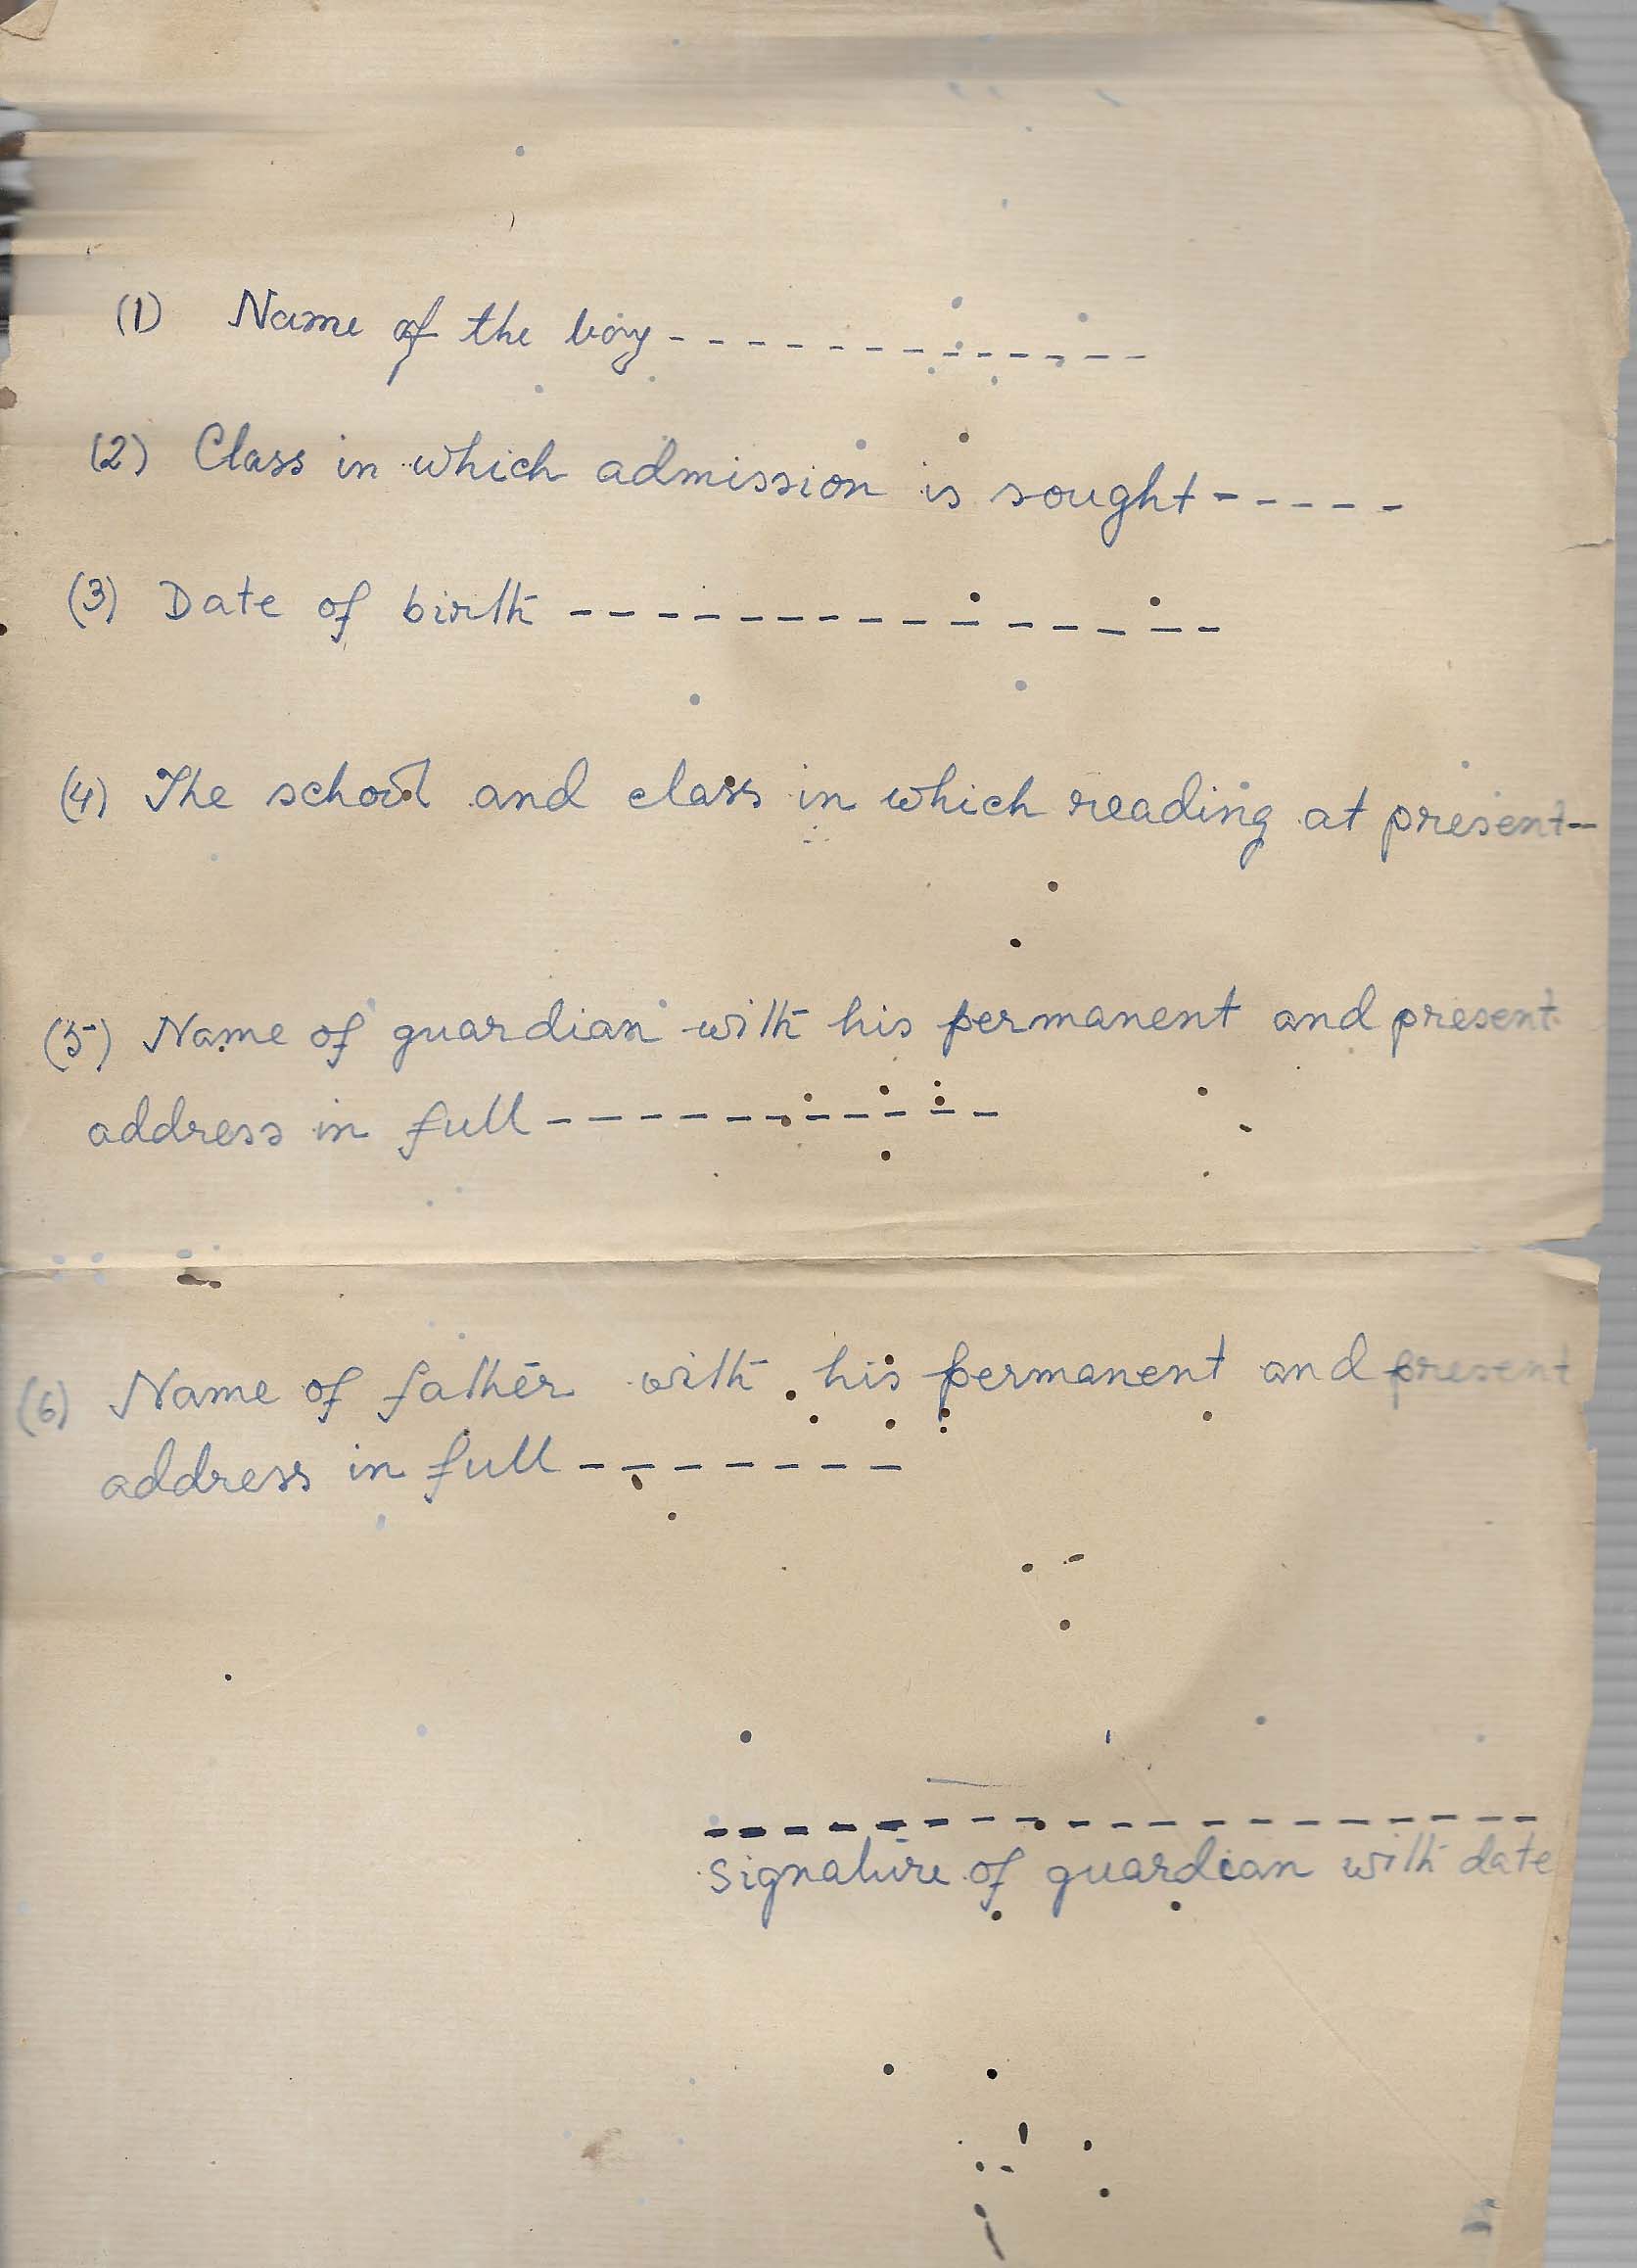 (1) Name of the boy - - - - - - - - - - - - -
(2) Class in which admission is sought - - - - -
(3) Date of birth - - - - - - - - - - - - - - - -
(4) The school and class in which reading at present -
(5) Name of guardian with his permanent and present
address in full - - - - - - - - - - - -
(6) Name of father with his permanent and present
address in full - - - - - - - -
- - - - - - - - - - - - - - - - - - -
signature of guardian with date